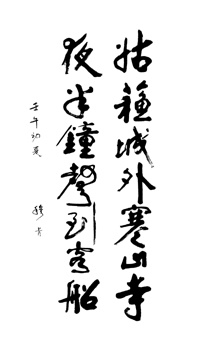 姑蘓城外寒山寺
夜半鐘聲到客船
壬午初夏
穆青